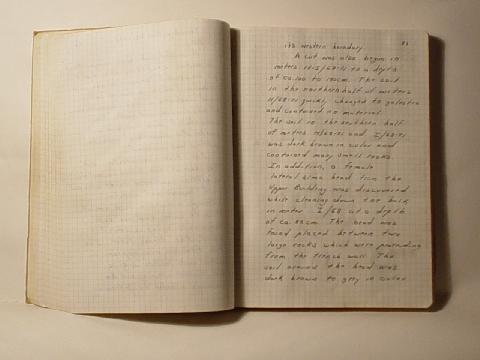 83
its western boundary.
A cut was also begun in
meters to a depth
of ca. 100 to 120cm. The soil
in the northern half of meters
H/68-71 quickly changed to galestro
and contained no material.
The soil in the southern half
of meters H/68-71 and I/68-71
was dark brown in color and
contained many small rocks.
In addition, a female
lateral sima head from the
Upper Building was discovered
while cleaning down the balk
in meter I/68 at a depth
of ca. 88cm. The head was
found placed between two
large rocks which were protruding
from the trench wall. The
soil around the head was
dark brown to grey in color